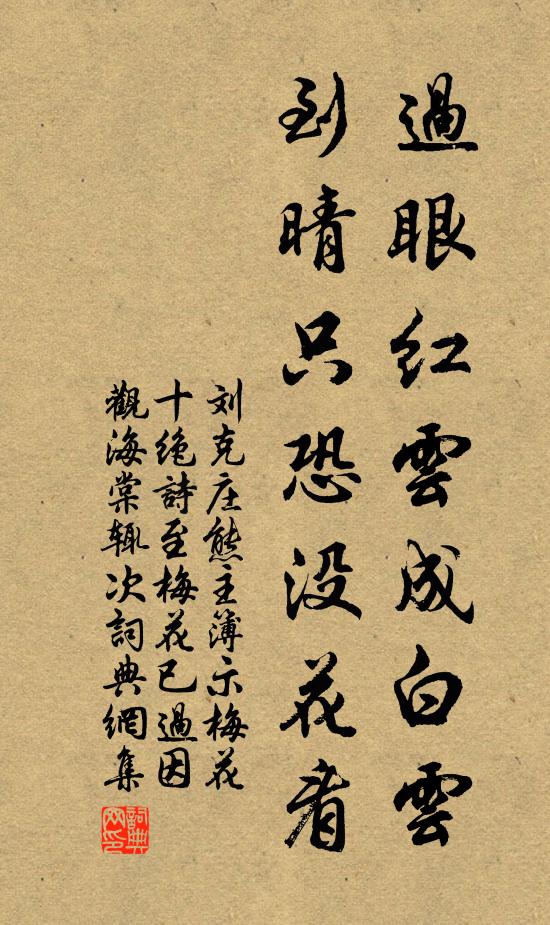 過眼紅雲成白雲
到晴只恐没花看
刘克庄熊主簿示梅花
十绝詩至梅花已過因
觀海棠辄次詞典網集
詞典网印